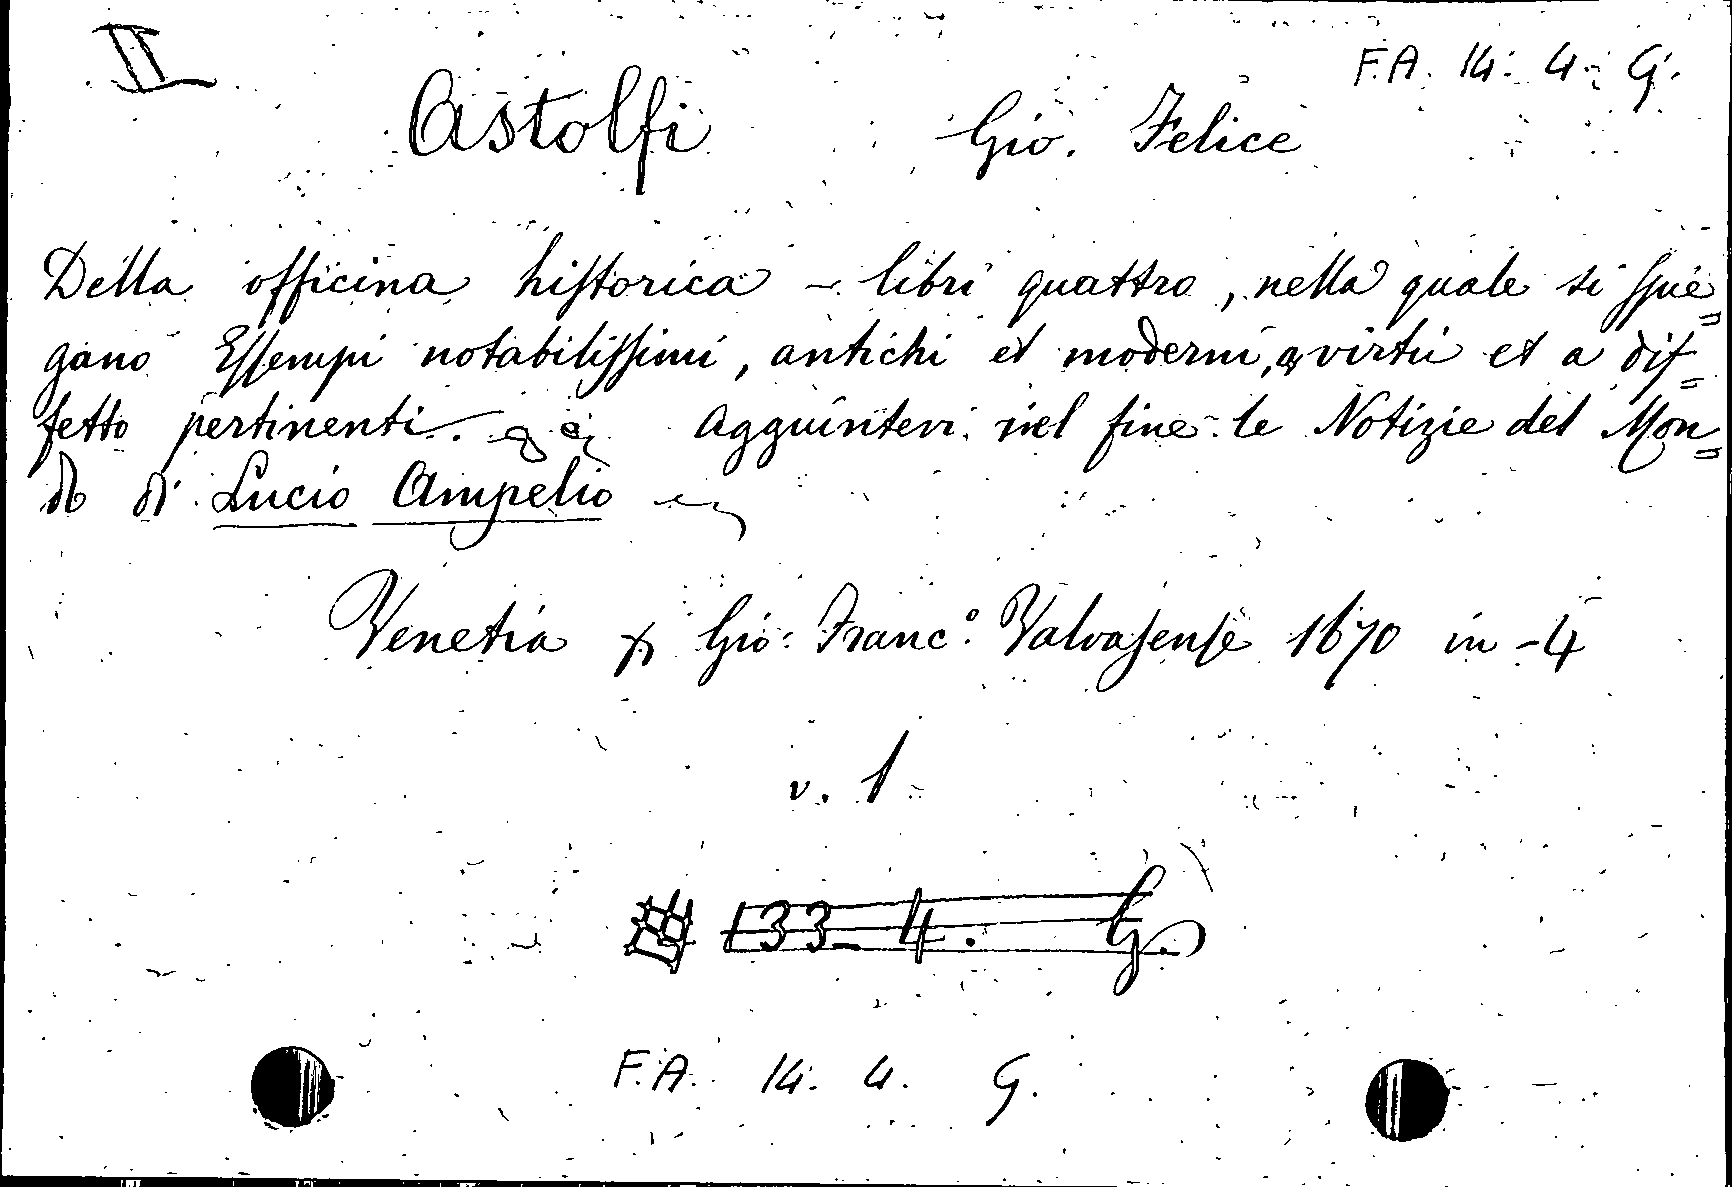 II
F.A. 14. 4. G.
Astolfi Gio. Felice
Della officina historica - libri quattro, nella quale si spie=
gano Essempi notabilissimi, antichi et moderni, a virtù et a dif=
fetto pertinenti. Agguintevi nel fine le Notizie del Mon=
do di Lucio Ampelio
Venetia Gio: Franc.º Valvasense 1670 in-4
v. 1
133-4. G.
F.A. 14. 4. G.